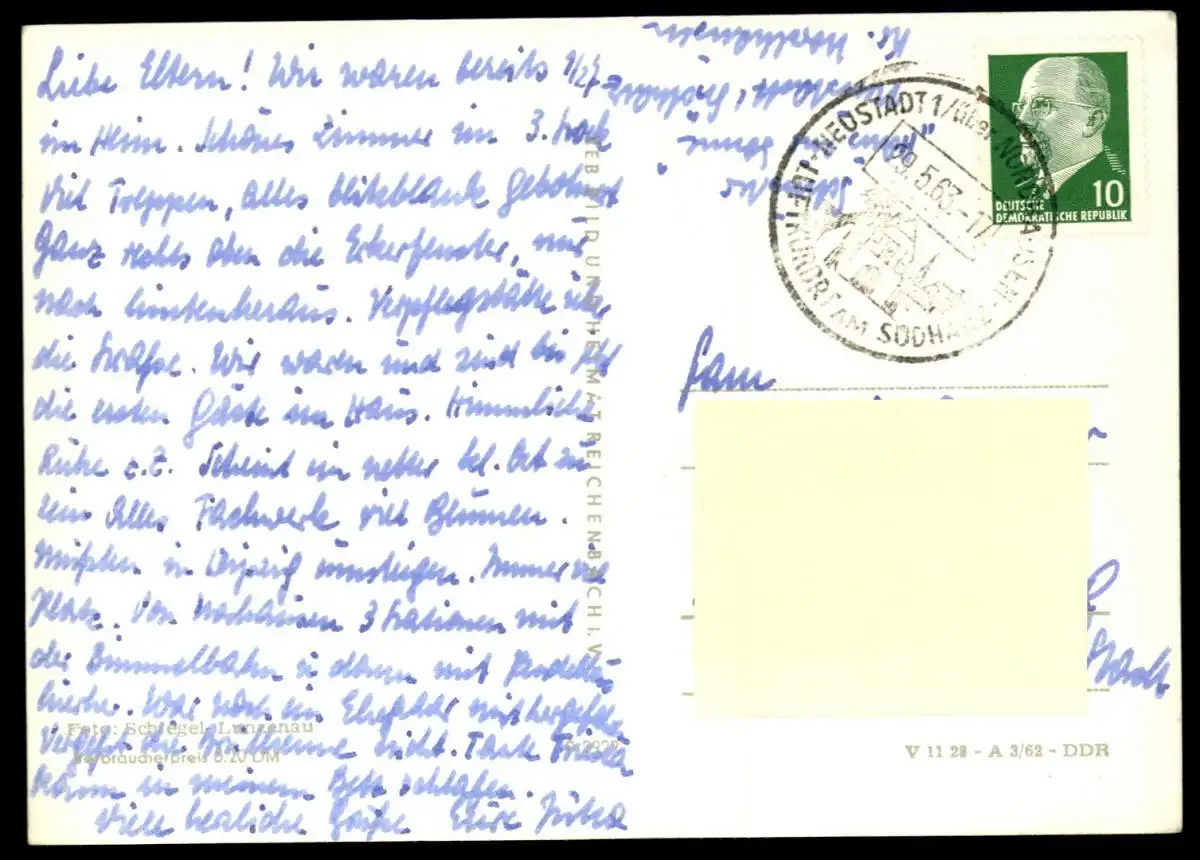 Liebe Eltern! Wir waren bereits 1/2 7
im Heim. Schönes Zimmer im 3. Stock
viel Treppen, alles blitzblank gebohnert
Ganz rechts oben die Erkerfenster, nur
nach hintenheraus. Verpflegstätte über
die Straße. Wir waren und sind bis jetzt
die ersten Gäste im Haus. Himmlische
Ruhe z.Z. Scheint ein netter kl. Ort zu
sein alles Fachwerk viel Blumen.
Mußten in Leipzig umsteigen. Immer viel
Platz. Von Nordhausen 3 Stationen mit
der Bimmelbahn u dann mit
hierher. War noch ein Ehepaar mithergefahren
Vergeßt die nicht. Tante Frieda
kann in meinem Bett schlafen.
Viele herzliche Grüße Eure Jutta
Foto: Schlegel, Lunzenau
Verbraucherpreis 0.20 DM
VEB BILD UND HEIMAT REICHENBACH I. V.
NEUSTADT 1 / über NORDHAUSEN
09.5.63.-17
LUFTKURORT AM SÜDHARZ
DEUTSCHE
DEMOKRATISCHE REPUBLIK
10
Fam
V 11 28 - A 3/62 - DDR